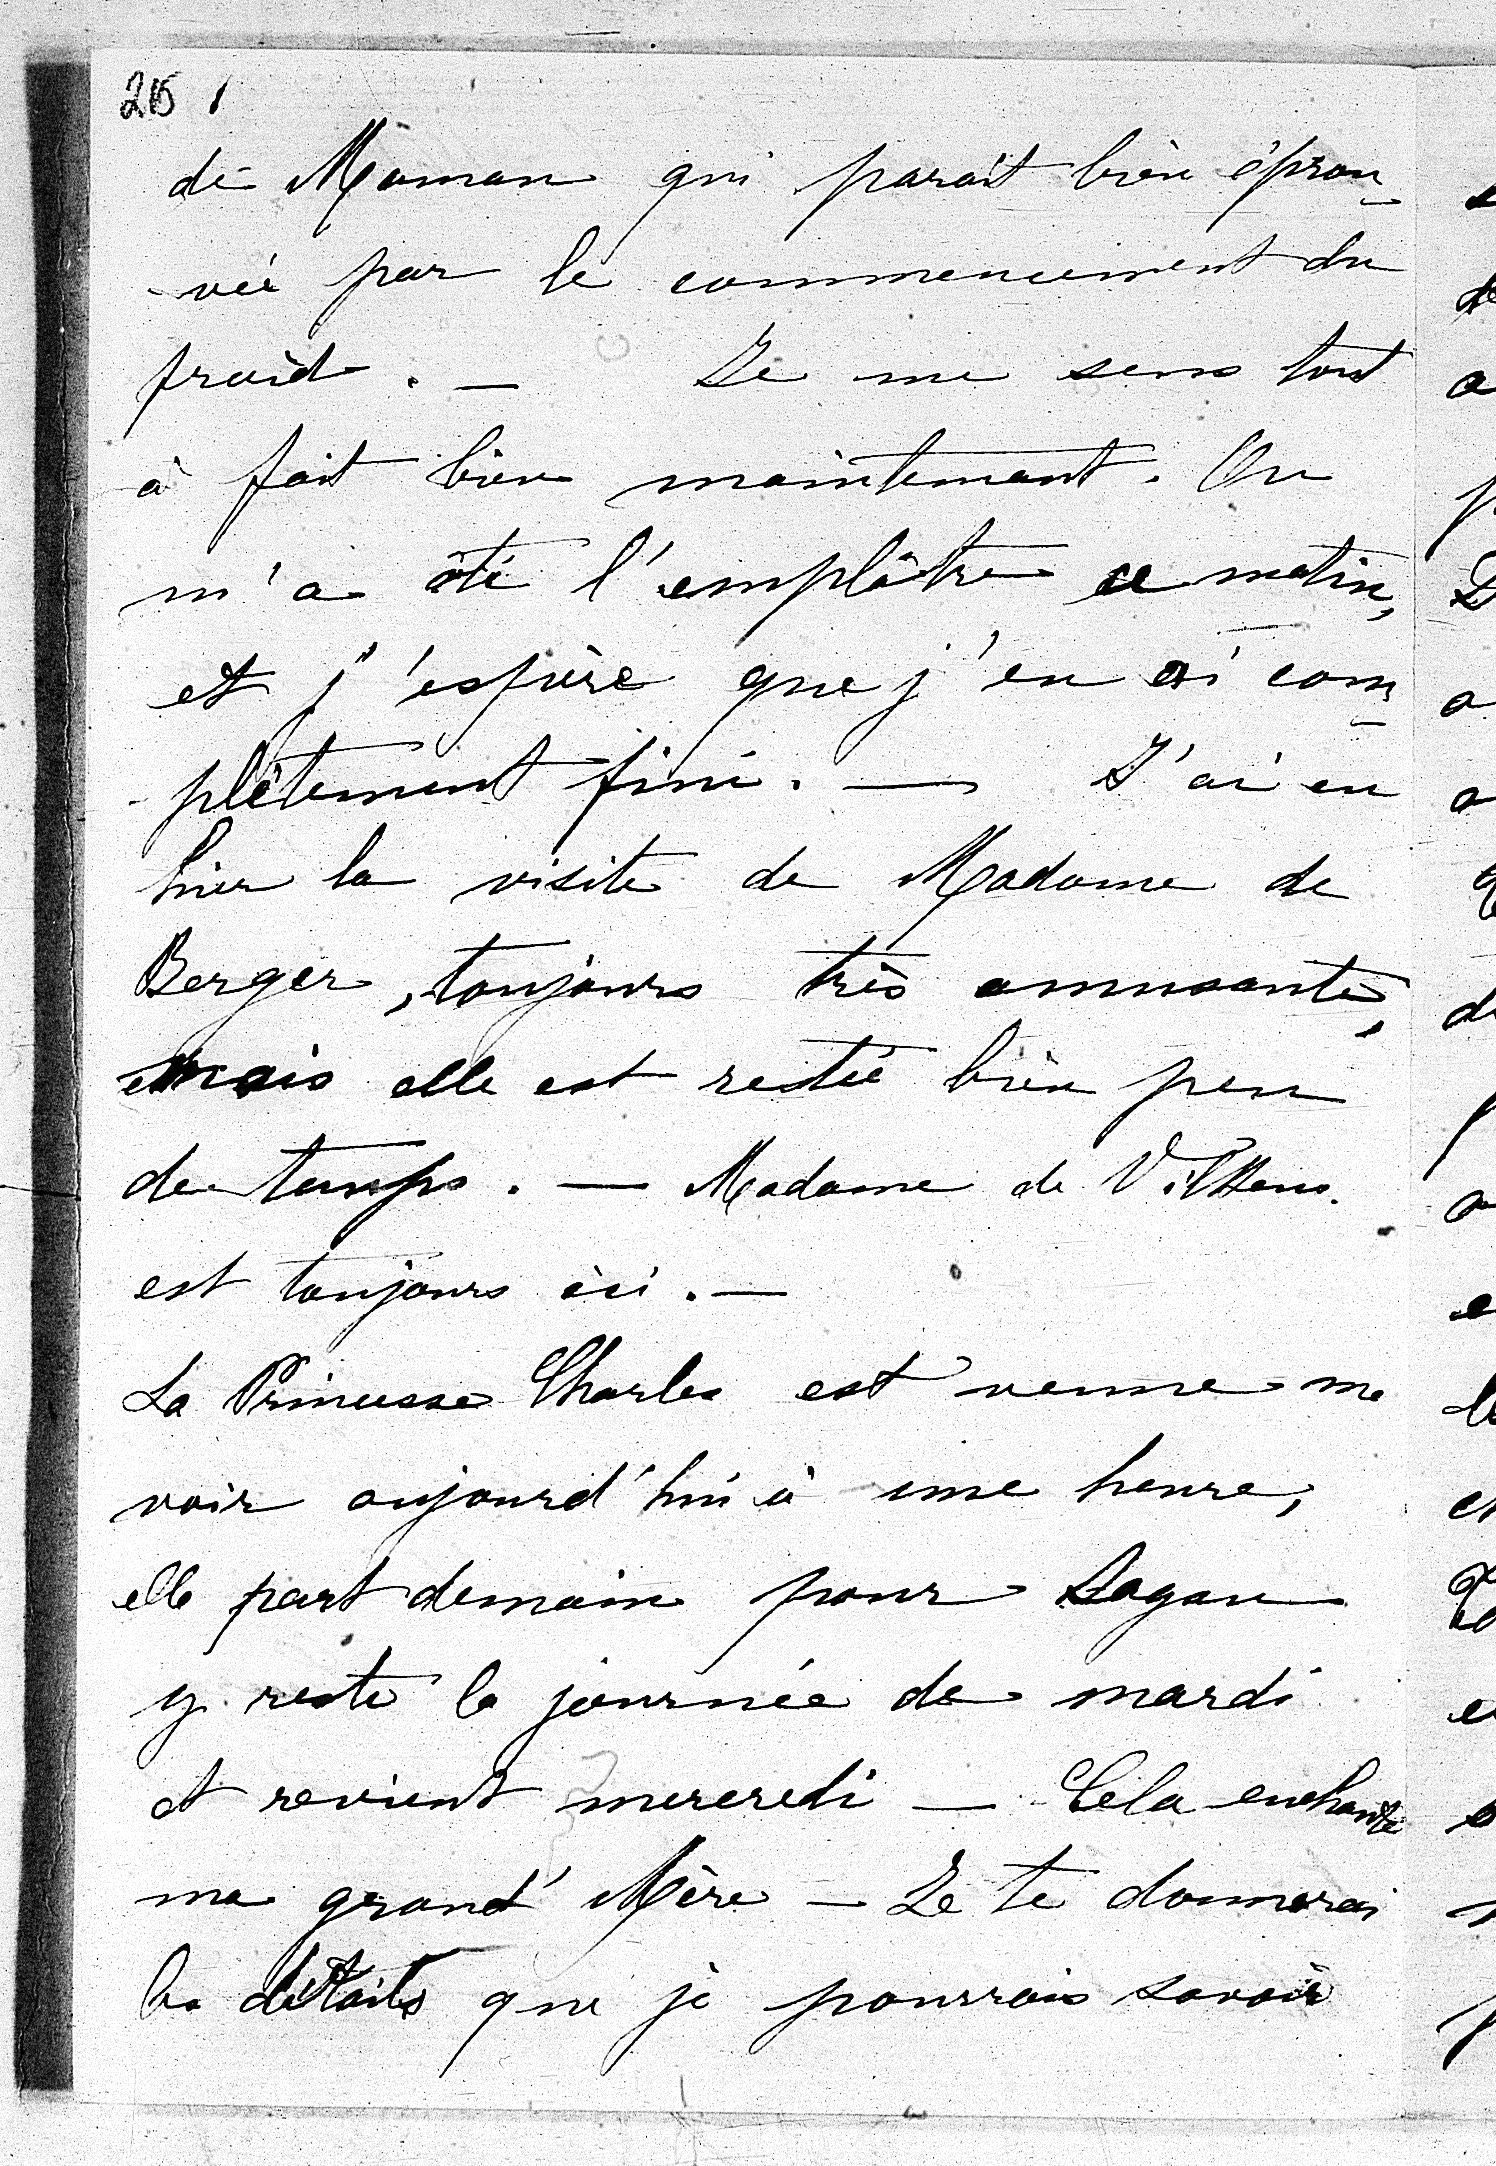 de Maman qui paraît bien éprou-
-vée par le commencement du
froid. — Je me sens tout
à fait bien maintenant. On
m'a ôté l'emplâtre ce matin,
et j'espère que j'en ai com-
-plètement fini. — J'ai eu
hier la visite de Madame de
Berger, toujours très amusante,
mais elle est restée bien peu
de temps. — Madame de
est toujours ici. —
La Princesse Charles est venue me
voir aujourd'hui à une heure,
elle part demain pour Sagan
y reste la journée de mardi
et revient mercredi — Cela enchante
ma grand' Mère — Je te donnerai
les détails que je pourrais savoir